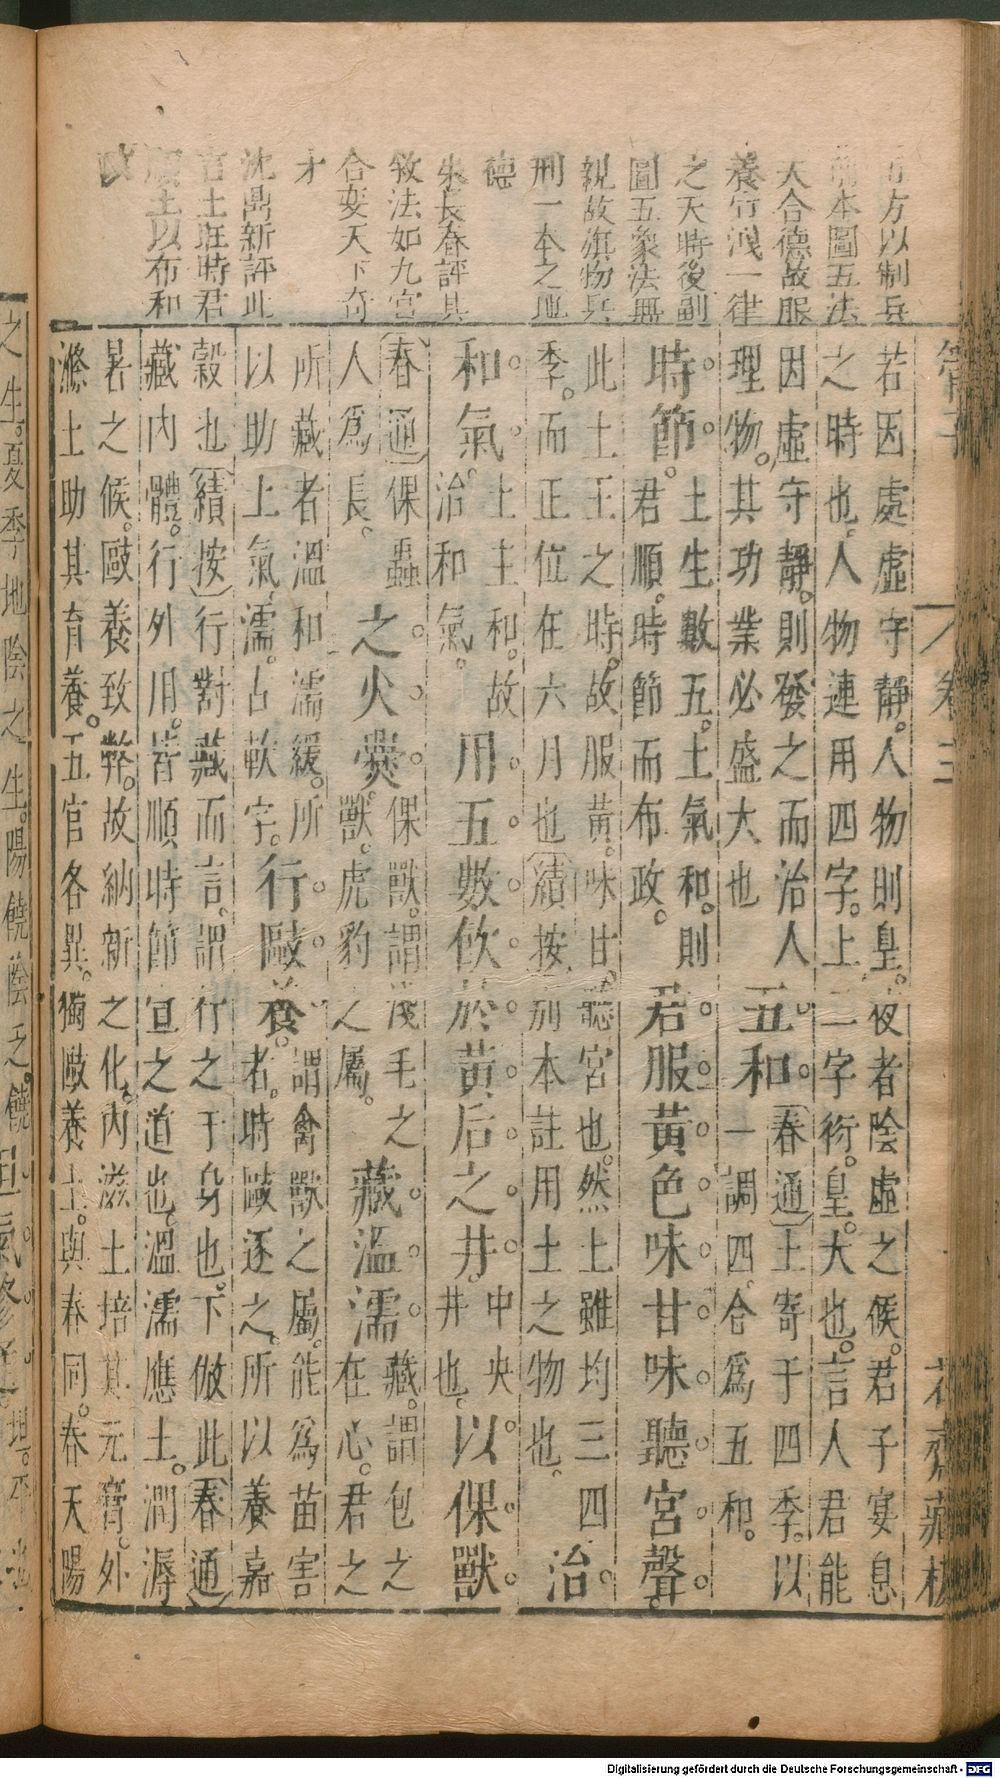 有方以制兵
本圖五法
天合德故服
養官洩一律
之天時後副
圖五象法無
親故旗物兵
刑一本之地
德
朱長春評具
敘法如九宮
合妥天下奇
才
沈鼎新評此
言土旺時君
順土以布和
政
管子
卷三
花齋藏板
若因處虛守靜。人物則皇。夜者陰虛之候。君子宴息
之時也。人物連用四字。上二字衍。皇。大也。言人君能
因虛守靜。則發之而治人
理物。其功業必盛大也
五。和。
(春通)土寄于四季。以
一調四。合爲五和。
時。節。
土生數五。土氣和。則
君順。時節而布政。
君。服。黃。色。味。甘。味。聽。宮。聲。
此土王之時。故服黃。味甘。聽宮也。然土雖均三四
季。而正位在六月也(績按)別本註用土之物也。
治。
和。氣。
土主和。故
治和氣。
用。五。數。飲。於。黃。后。之。井。
中央
井也。
以。倮。獸。
(春通)倮蟲
人爲長。
之。火。爨。
倮獸。謂淺毛之
獸。虎豹之屬。
藏。溫。濡。
藏。謂包之
在心。君之
所藏者溫和濡緩。所
以助土氣。濡。古軟字。
行。敺。養。
謂禽獸之屬。能爲苗害
者。時敺逐之。所以養嘉
穀也(績按)行對藏而言。謂行之于身也。下倣此(春通)
藏內體。行外用。皆順時節宣之道也。溫濡應土。潤溽
暑之候。敺養致弊。故納新之化。內滋土培其元膏。外
滌土助其育養。五官各異。獨敺養土。與春同。春天陽
之生。夏季地陰之生。陽饒陰乏。饒
Digitalisierung gefördert durch die Deutsche Forschungsgemeinschaft - DFG